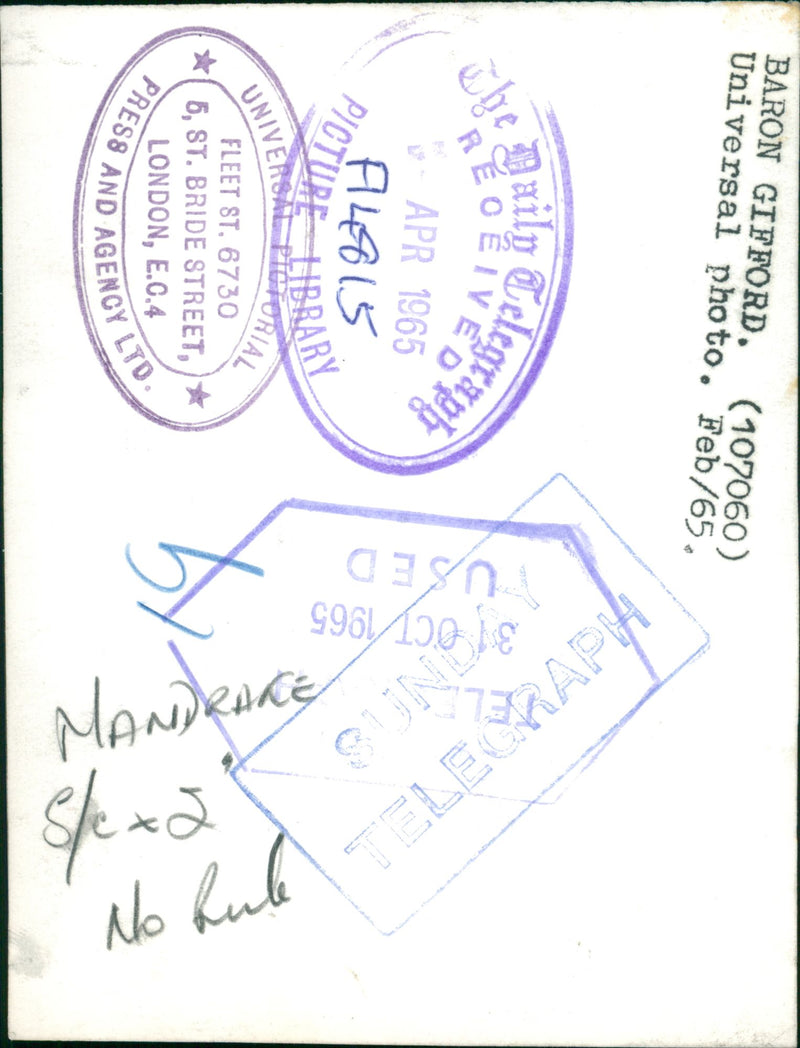 BARON GIFFORD. (107060)
Universal photo. Feb/65.
The Daily Telegraph
RECEIVED
APR 1965
PICTURE LIBRARY
UNIVERSAL PICTORIAL
FLEET ST. 6730
5, ST. BRIDE STREET,
LONDON, E.C.4
PRESS AND AGENCY LTD.
USED
31 OCT 1965
TELE
SUNDAY
TELEGRAPH
MANDRAKE
S/c x 2"
No Rule